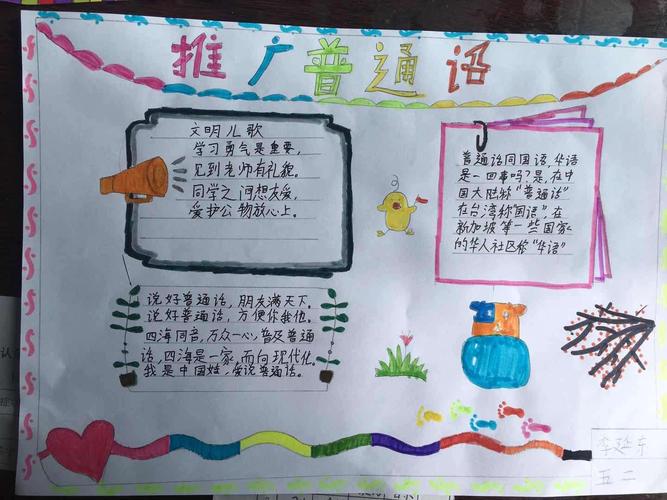 推广普通话
文明儿歌
学习勇气是重要,
见到老师有礼貌。
同学之间想友爱,
爱护公物放心上。
普通话同国语,华语
是一回事吗?是,在中
国大陆称"普通话"
在台湾称"国语",在
新加坡等一些国家
的华人社区称"华语"
说好普通话,朋友满天下。
说好普通话,方便你我他。
四海同音,万众一心,普及普通
话,四海是一家,面向现代化。
我是中国娃,爱说普通话。
五二